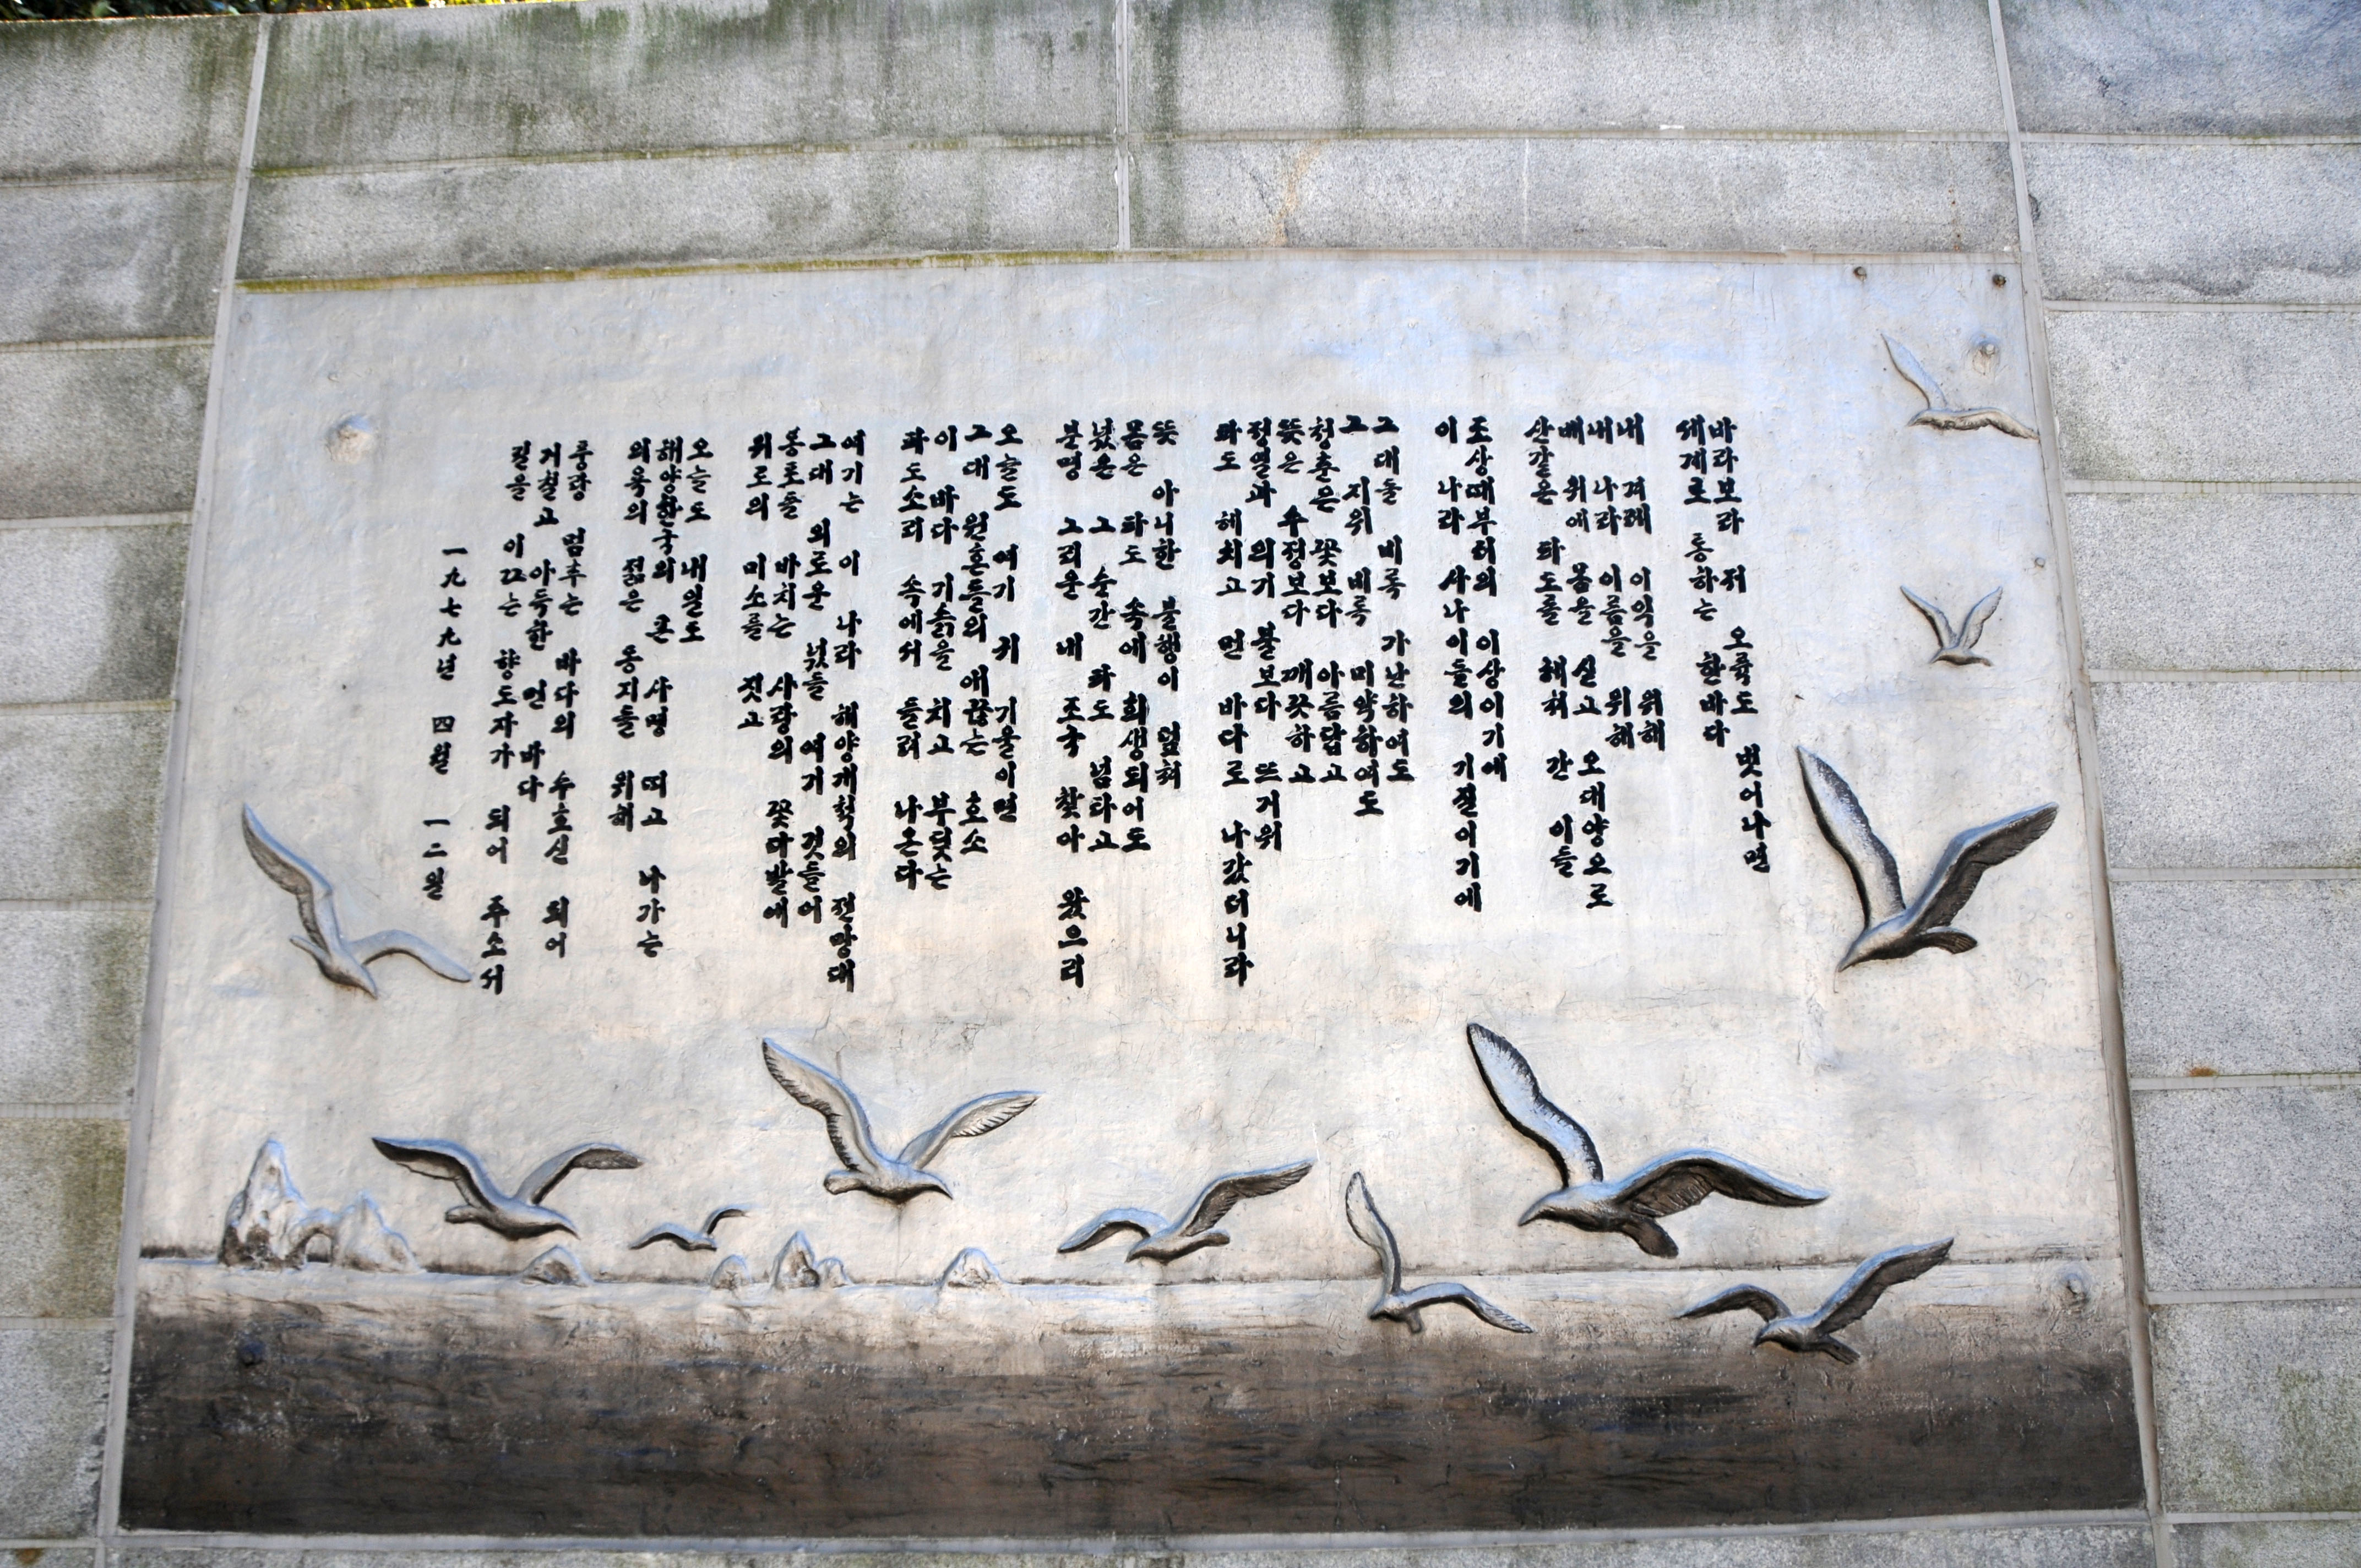 바라보라 저 오륙도 벗어나면
세계로 통하는 한바다
내 겨레 이익을 위해
내 나라 이름을 위해
배 위에 몸을 싣고 오대양으로
산같은 파도를 헤쳐 간 이들
조상때부터의 이상이기에
이 나라 사나이들의 기질이기에
그대들 비록 가난하여도
그 지위 비록 미약하여도
청춘은 꽃보다 아름답고
뜻은 수정보다 깨끗하고
정열과 의기 불보다 뜨거워
파도 헤치고 먼 바다로 나갔더니라
뜻 아니한 불행이 덮쳐
몸은 파도 속에 희생되어도
넋은 그 순간 파도 넘타고
분명 그리운 내 조국 찾아 왔으리
오늘도 여기 귀 기울이면
그대 원혼들의 애끊는 호소
이 바다 기슭을 치고 부딪는
파도소리 속에서 들려 나온다
여기는 이 나라 해양개척의 전망대
그대 외로운 넋들 여기 깃들어
봉포들 바치는 사랑의 꽃다발에
위로의 미소를 짓고
오늘도 내일도
해양한국의 큰 사명 띠고 나가는
의욕의 젊은 동지들 위해
풍랑 멈추는 바다의 수호신 되어
거칠고 아득한 먼 바다
길을 이끄는 향도자가 되어 주소서
一九七九년 四월 一二일